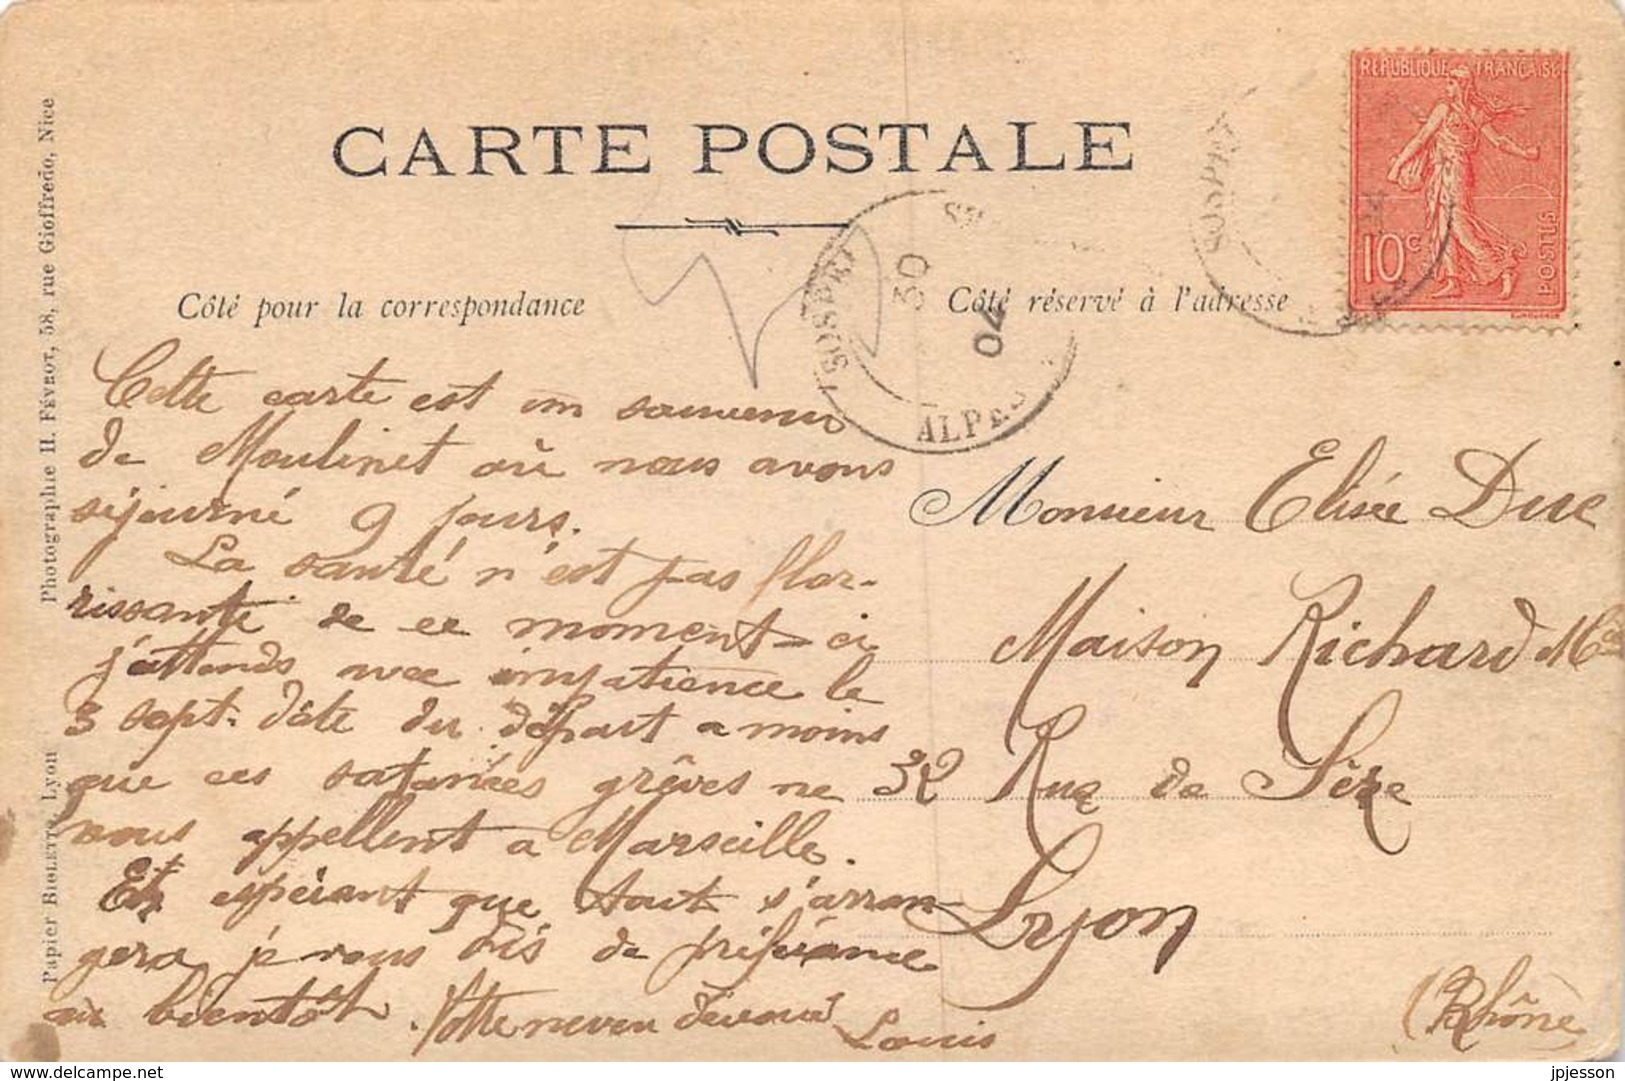 CARTE POSTALE
REPUBLIQUE FRANÇAISE
10c
POSTES
Côté pour la correspondance
Côté réservé à l'adresse
SOSPEL
30
04
ALPES
SOSPEL
Cette carte est un souvenir
de Moulinet où nous avons
séjourné 9 jours.
La santé n'est pas flor-
rissante de ce moment-ci
j'attends avec impatience le
3 sept. date du départ a moins
que ces satanées grêves ne
nous appellent a Marseille.
En espérant que tout s'arran-
gera, je vous dis de préférance
au bientôt. Votre neveu dévoué
Louis
Monsieur Elisée Duc
Maison Richard
32 Rue de Sèze
Lyon
(Rhône
Photographie H. FÉVROT, 58, rue Gioffredo, Nice
Papier BIOLETTO, Lyon
www.delcampe.net
jpjesson